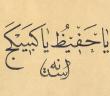 يا حفيظ يا كبيكج
سنه